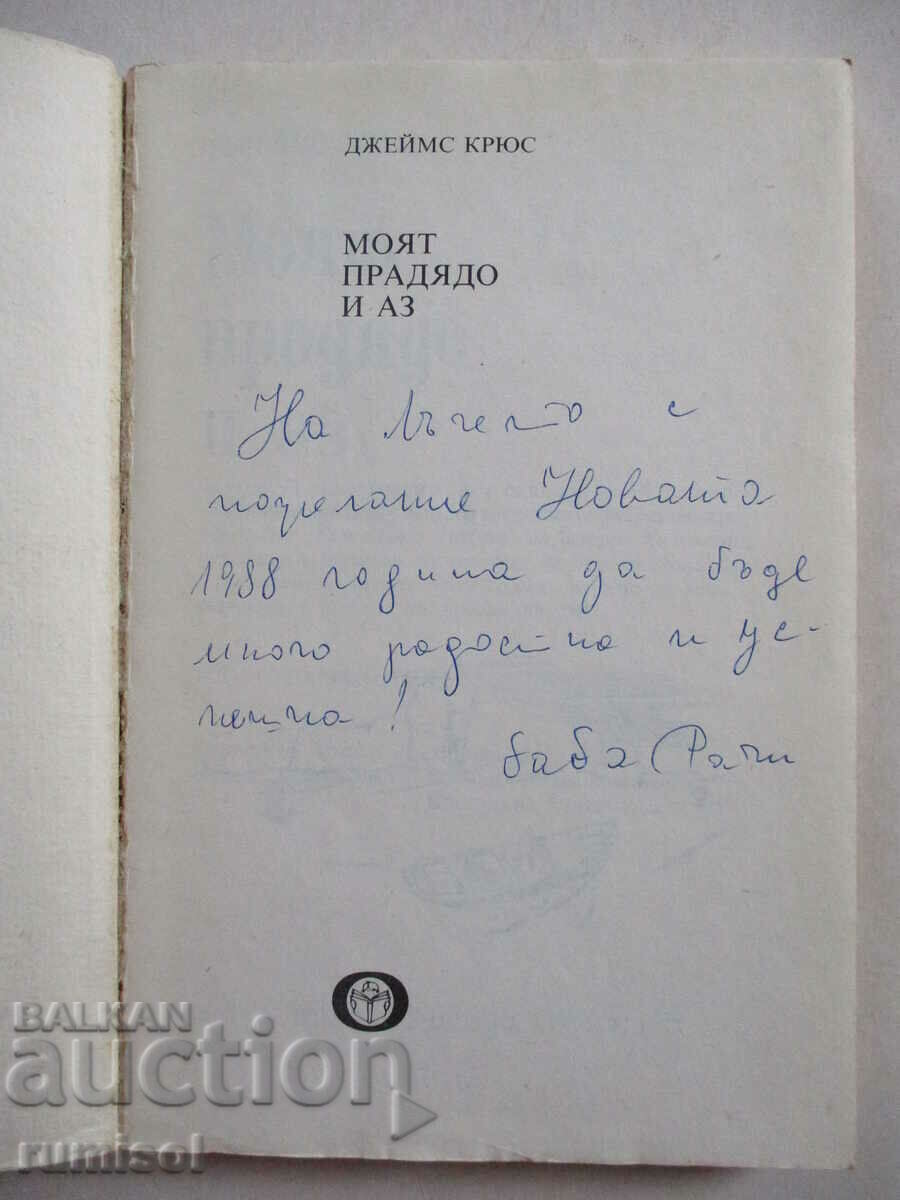 ДЖЕЙМС КРЮС
МОЯТ
ПРАДЯДО
И АЗ
На Лъчето с
пожелание Новата
1988 година да бъде
много радостна и ус-
пешна!
баба Рачи
BALKAN
auction
rumisol